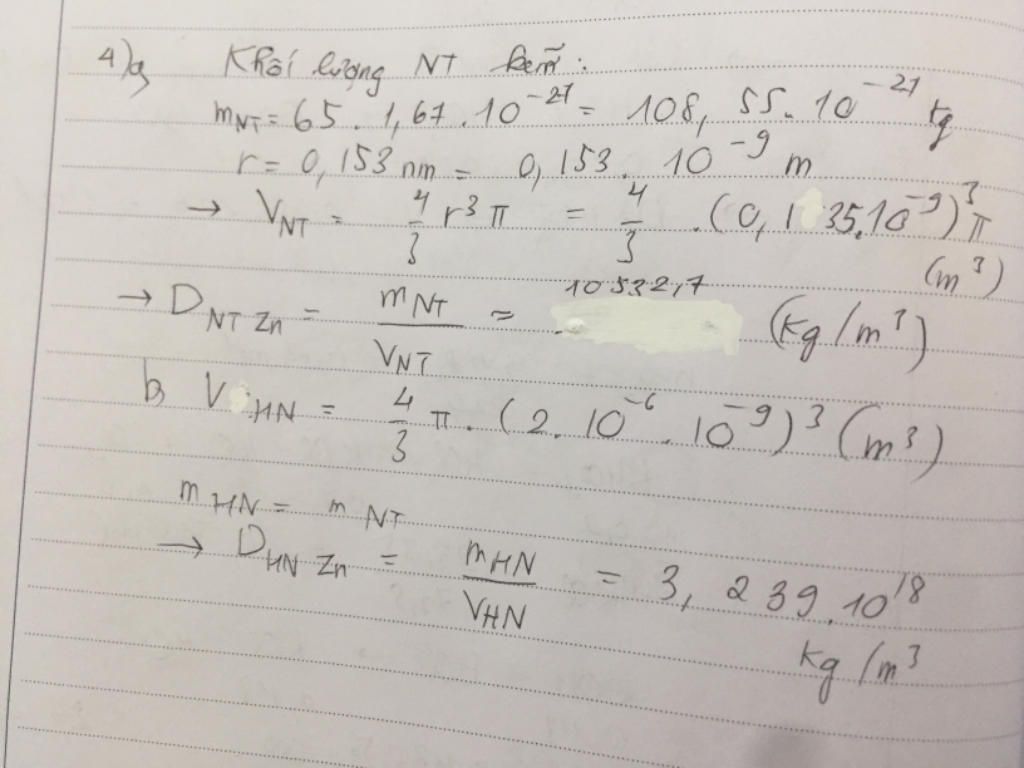 4)a Khối lượng NT kẽm :
mNT = 65 . 1,67 . 10^-27 = 108,55 . 10^-27 kg
r = 0,153 nm = 0,153 . 10^-9 m
→ VNT = 4/3 r³ π = 4/3 . (0,1 35.10^-9)³ π
(m³)
→ DNT Zn = mNT/VNT ≈ 10532,7 (kg/m³)
b VHN = 4/3 π . (2 . 10^-6 . 10^-9)³ (m³)
mHN = mNT
→ DHN Zn = mHN/VHN = 3,239.10^18
kg/m³